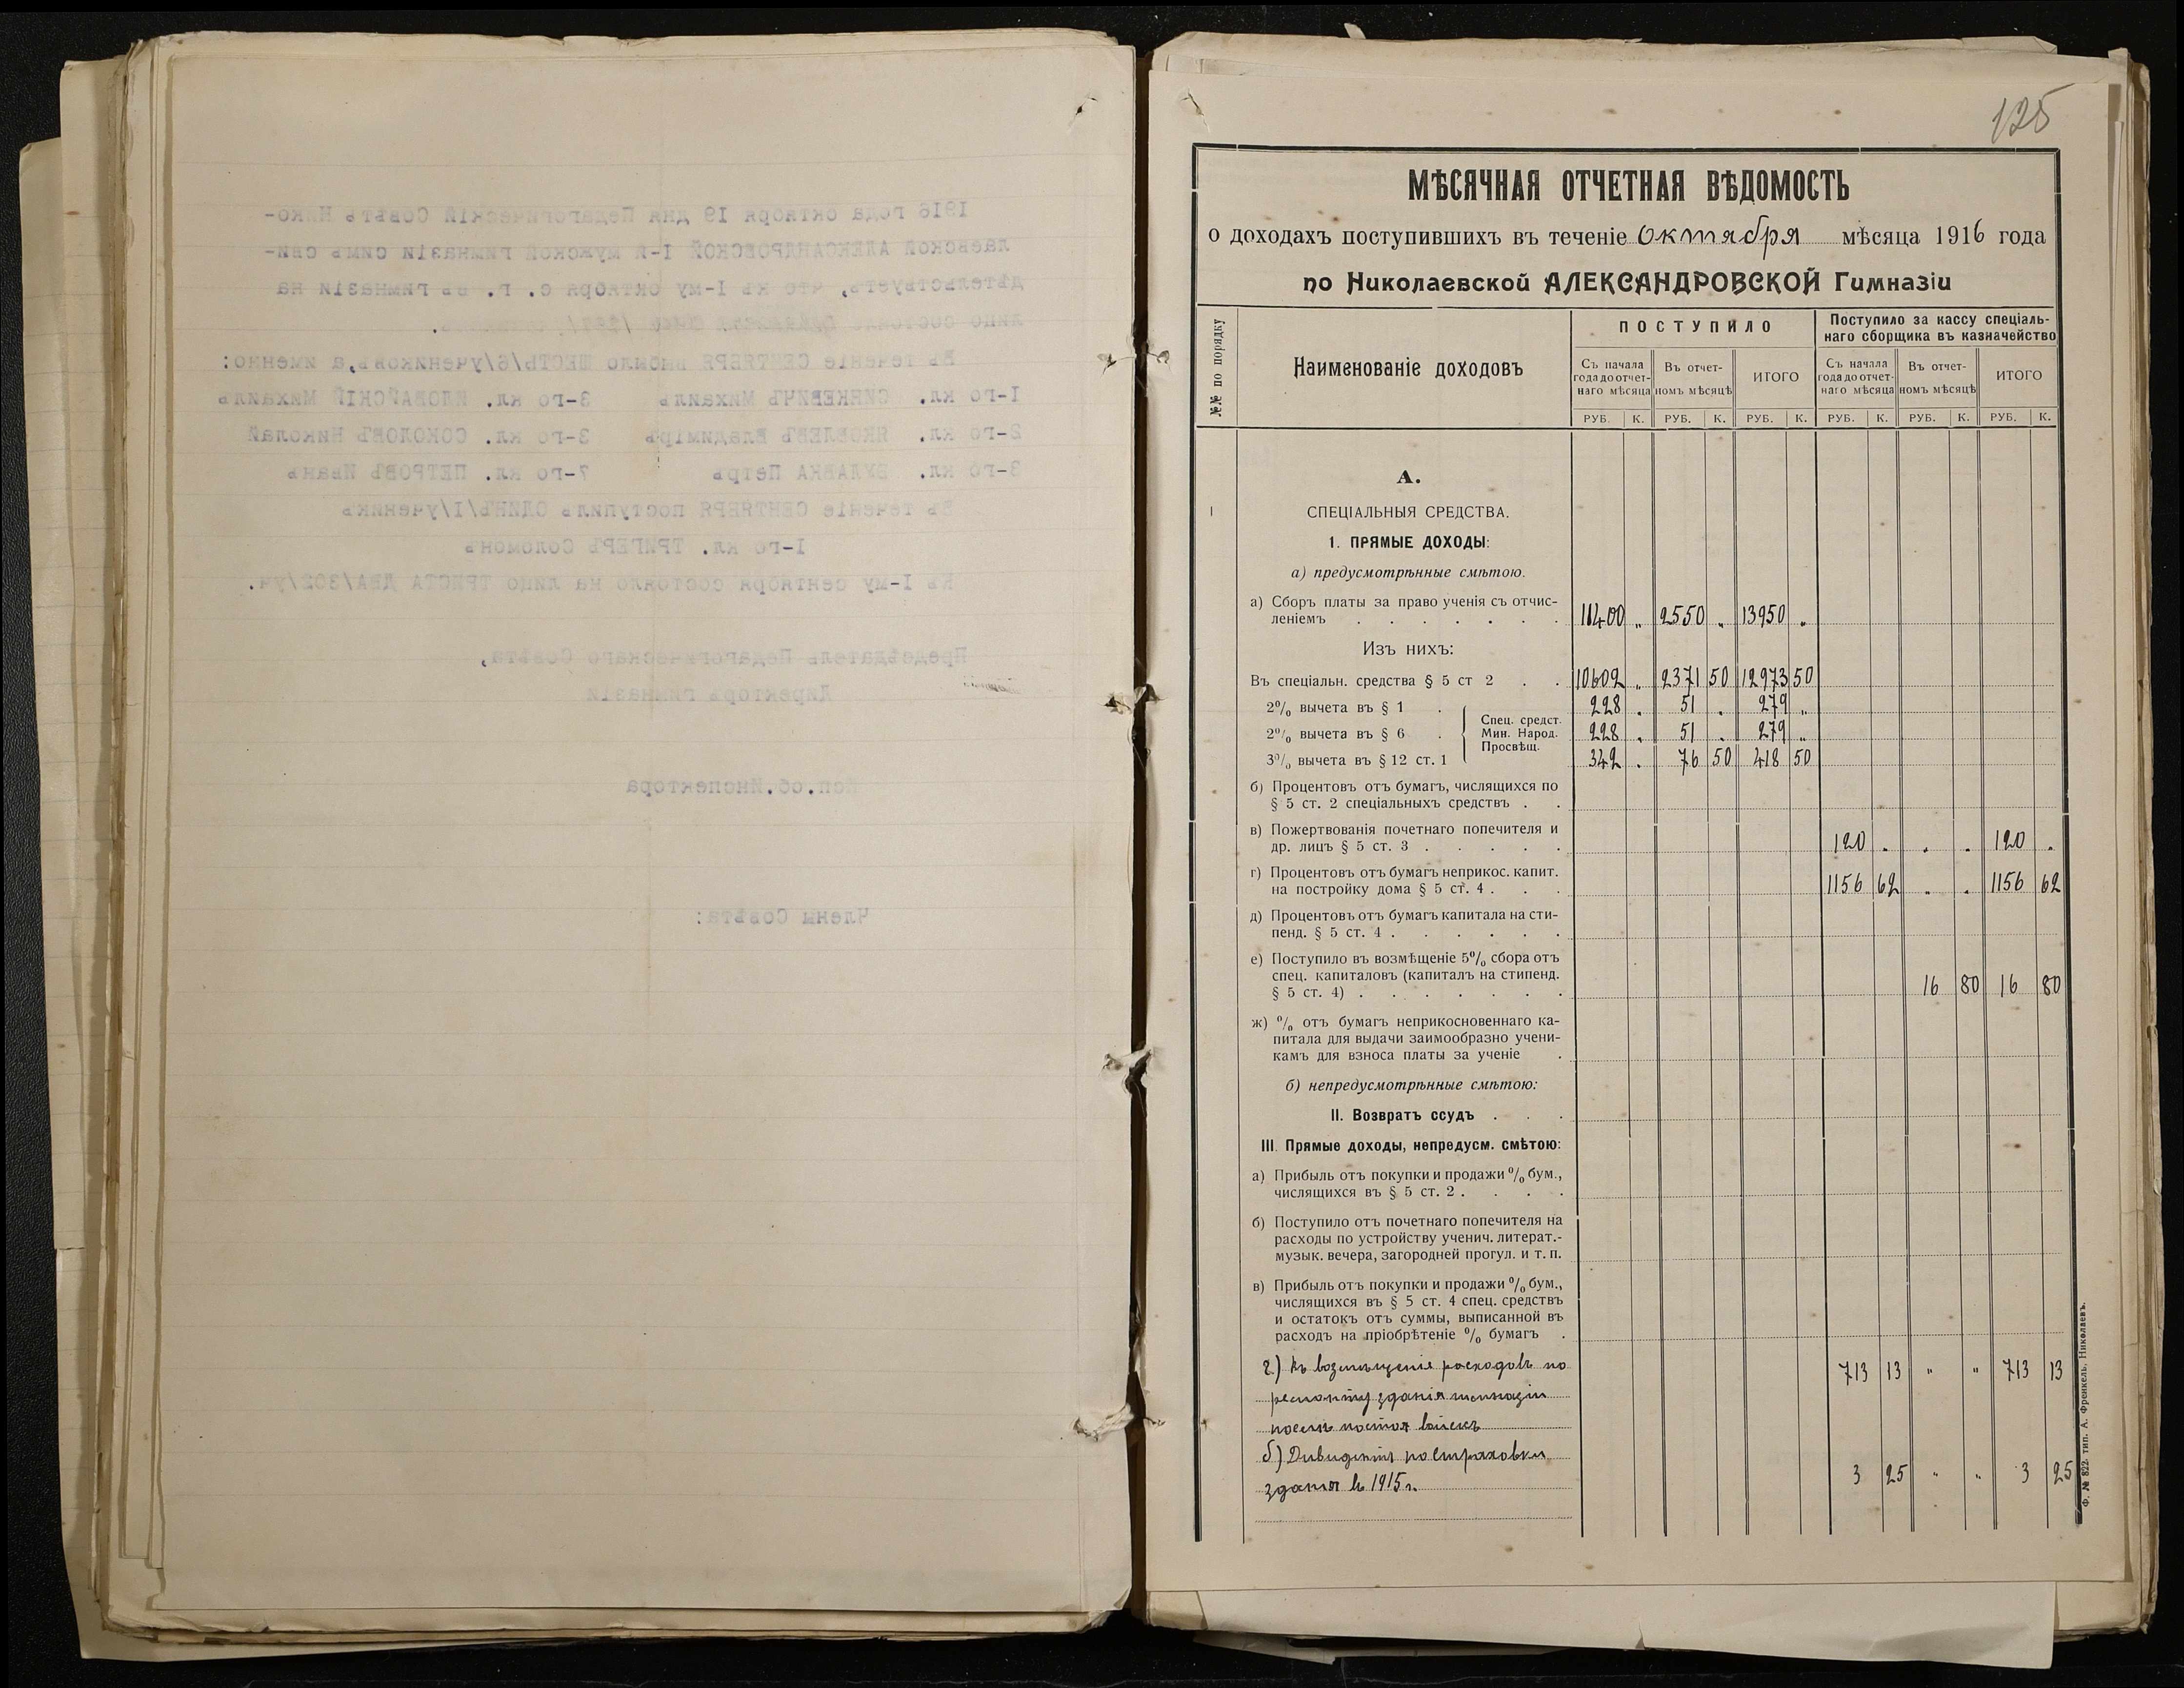 1916 года октября 19 дня Педагогическій Совѣтъ Нико-
лаевской АЛЕКСАНДРОВСКОЙ I-й мужской гимназіи симъ сви-
дѣтельствуетъ, что къ I-му октября с. г. въ гимназіи на
лицо состояло
Въ теченіе СЕНТЯБРЯ выбыло ШЕСТЬ/6/учениковъ,а именно:
I-го кл. СИНКЕВИЧЪ Михаилъ 3-го кл. ИЛОВАЙСКІЙ Михаилъ
2-го кл. ЯКОВЛЕВЪ Владиміръ 3-го кл. СОКОЛОВЪ Николай
3-го кл. БУЛАВКА Петръ 7-го кл. ПЕТРОВЪ Иванъ
Въ теченіе СЕНТЯБРЯ поступилъ ОДИНЪ/I/ученикъ
I-го кл. ТРИГЕРЪ Соломонъ
Къ I-му сентября состояло на лицо ТРИСТА ДВА/302/уч.
Предсѣдатель Педагогическаго Совѣта,
Директоръ гимназіи
Исп.об.Инспектора
Члены Совѣта:
125
МѢСЯЧНАЯ ОТЧЕТНАЯ ВѢДОМОСТЬ
о доходахъ поступившихъ въ теченіе октября мѣсяца 1916 года
по Николаевской АЛЕКСАНДРОВСКОЙ Гимназіи
№№ по порядку
Наименованіе доходовъ
ПОСТУПИЛО
Поступило за кассу спеціаль-
наго сборщика въ казначейство
Съ начала года до отчет- наго мѣсяца
Въ отчет- номъ мѣсяцѣ
ИТОГО
Съ начала года до отчет- наго мѣсяца
Въ отчет- номъ мѣсяцѣ
ИТОГО
РУБ. К. РУБ. К. РУБ. К. РУБ. К. РУБ. К. РУБ. К.
А.
СПЕЦІАЛЬНЫЯ СРЕДСТВА.
1. ПРЯМЫЕ ДОХОДЫ:
а) предусмотрѣнные смѣтою.
а) Сборъ платы за право ученія съ отчис-
леніемъ . . . . . . . 11400 „ 2550 „ 13950 „
Изъ нихъ:
Въ спеціальн. средства § 5 ст 2 . . 10602 „ 2371 50 12973 50
2% вычета въ § 1 . 228 . 51 . 279 „
2% вычета въ § 6 . 228 . 51 . 279 „
3% вычета въ § 12 ст. 1 342 . 76 50 418 50
Спец. средст.
Мин. Народ.
Просвѣщ.
б) Процентовъ отъ бумагъ, числящихся по
§ 5 ст. 2 спеціальныхъ средствъ . .
в) Пожертвованія почетнаго попечителя и
др. лицъ § 5 ст. 3 . . . . . 120 . . . 120 .
г) Процентовъ отъ бумагъ неприкос. капит.
на постройку дома § 5 ст. 4 . . . 1156 62 . . 1156 62
д) Процентовъ отъ бумагъ капитала на сти-
пенд. § 5 ст. 4 . . . . . .
е) Поступило въ возмѣщеніе 5% сбора отъ
спец. капиталовъ (капиталъ на стипенд.
§ 5 ст. 4) . . . . . . . 16 80 16 80
ж) % отъ бумагъ неприкосновеннаго ка-
питала для выдачи заимообразно учени-
камъ для взноса платы за ученіе .
б) непредусмотрѣнные смѣтою:
II. Возвратъ ссудъ . . .
III. Прямые доходы, непредусм. смѣтою:
а) Прибыль отъ покупки и продажи % бум.,
числящихся въ § 5 ст. 2 . . . .
б) Поступило отъ почетнаго попечителя на
расходы по устройству ученич. литерат.-
музык. вечера, загородней прогул. и т. п.
в) Прибыль отъ покупки и продажи % бум.,
числящихся въ § 5 ст. 4 спец. средствъ
и остатокъ отъ суммы, выписанной въ
расходъ на пріобрѣтеніе % бумагъ .
г) Въ возмѣщеніе расходовъ по 713 13 " " 713 13
ремонту зданія гимназіи
послѣ постоя войскъ
б) Дивидентъ по страховкѣ
зданія въ 1915 г. 3 25 " " 3 25
Ф. № 822. тип. А. Френкель, Николаевъ.